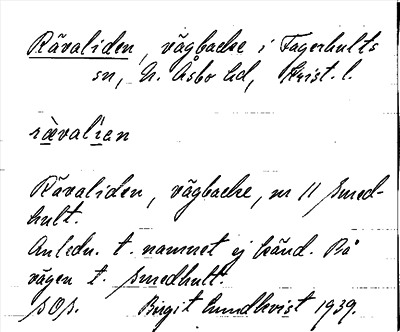 Rävaliden, vägbacke i Fagerhults
sn, N. Åsbo hd, Krist. l.
rävalían
Rävaliden, vägbacke, nr 11 Smed-
hult.
Anledn. t. namnet ej känd. På
vägen t. Smedhult.
SOS. Birgit Lundkvist 1939.